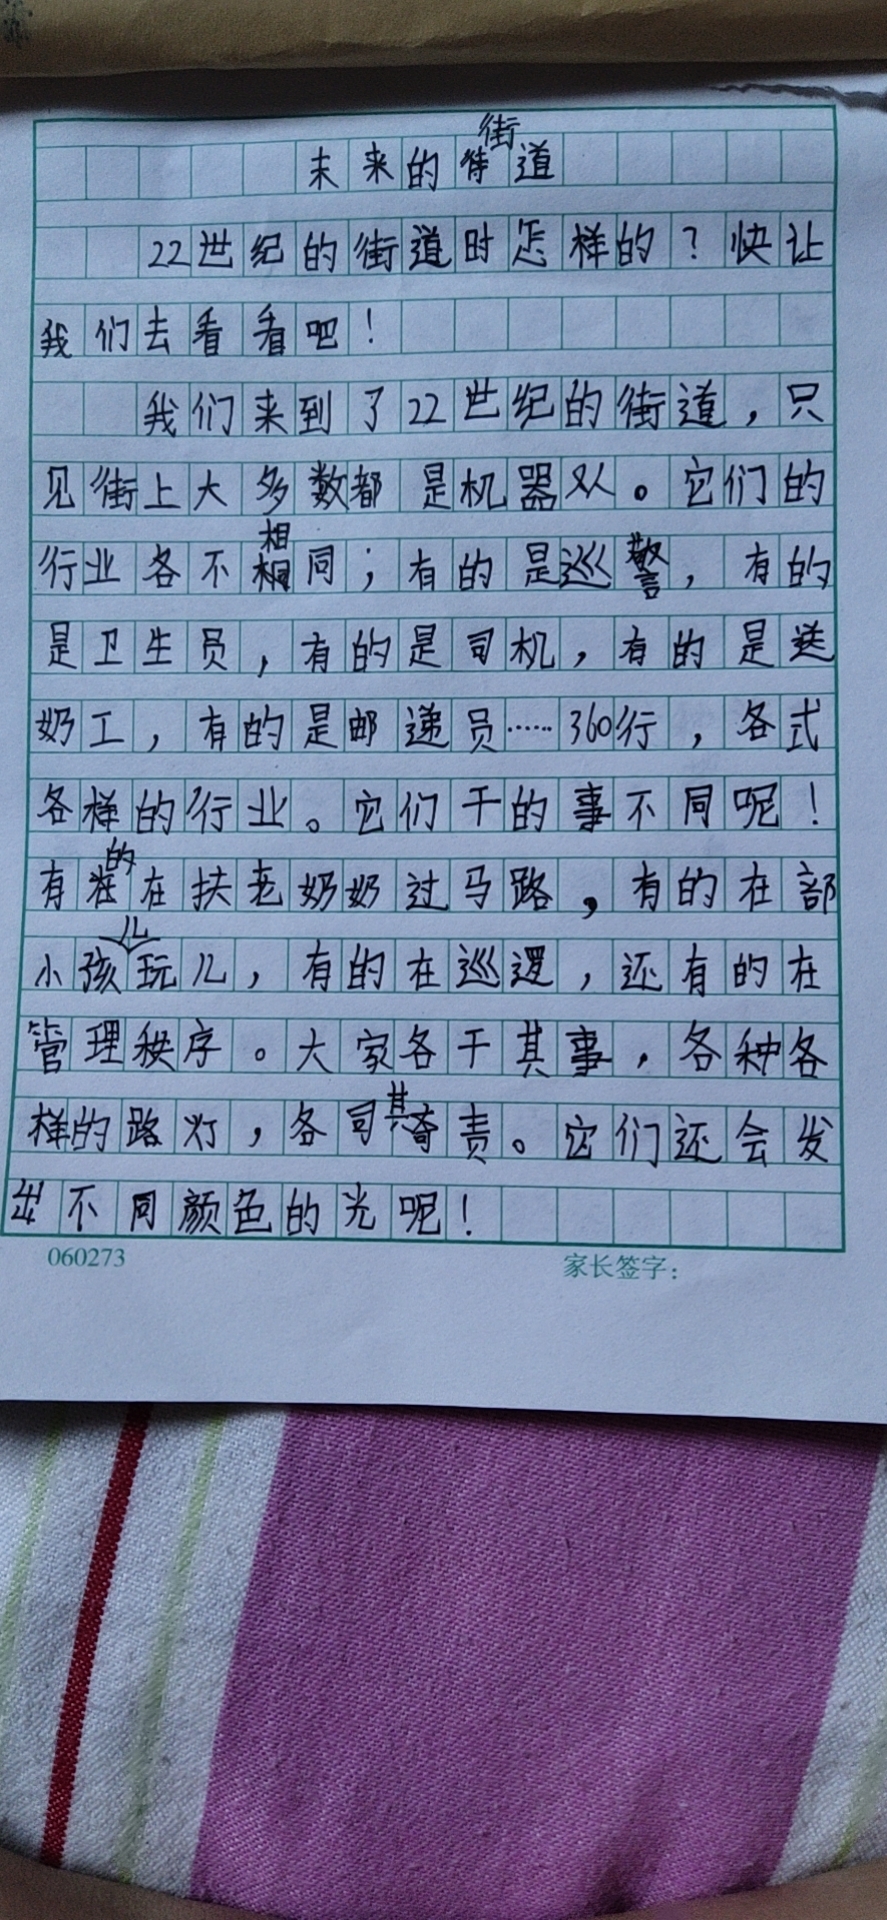 未来的街道
22世纪的街道时怎样的？快让
我们去看看吧！
我们来到了22世纪的街道，只
见街上大多数都是机器人。它们的
行业各不相同；有的是巡警，有的
是卫生员，有的是司机，有的是送
奶工，有的是邮递员……360行，各式
各样的行业。它们干的事不同呢！
有的在扶老奶奶过马路，有的在部
小孩儿玩儿，有的在巡逻，还有的在
管理秩序。大家各干其事，各种各
样的路灯，各司其责。它们还会发
出不同颜色的光呢！
060273 家长签字：